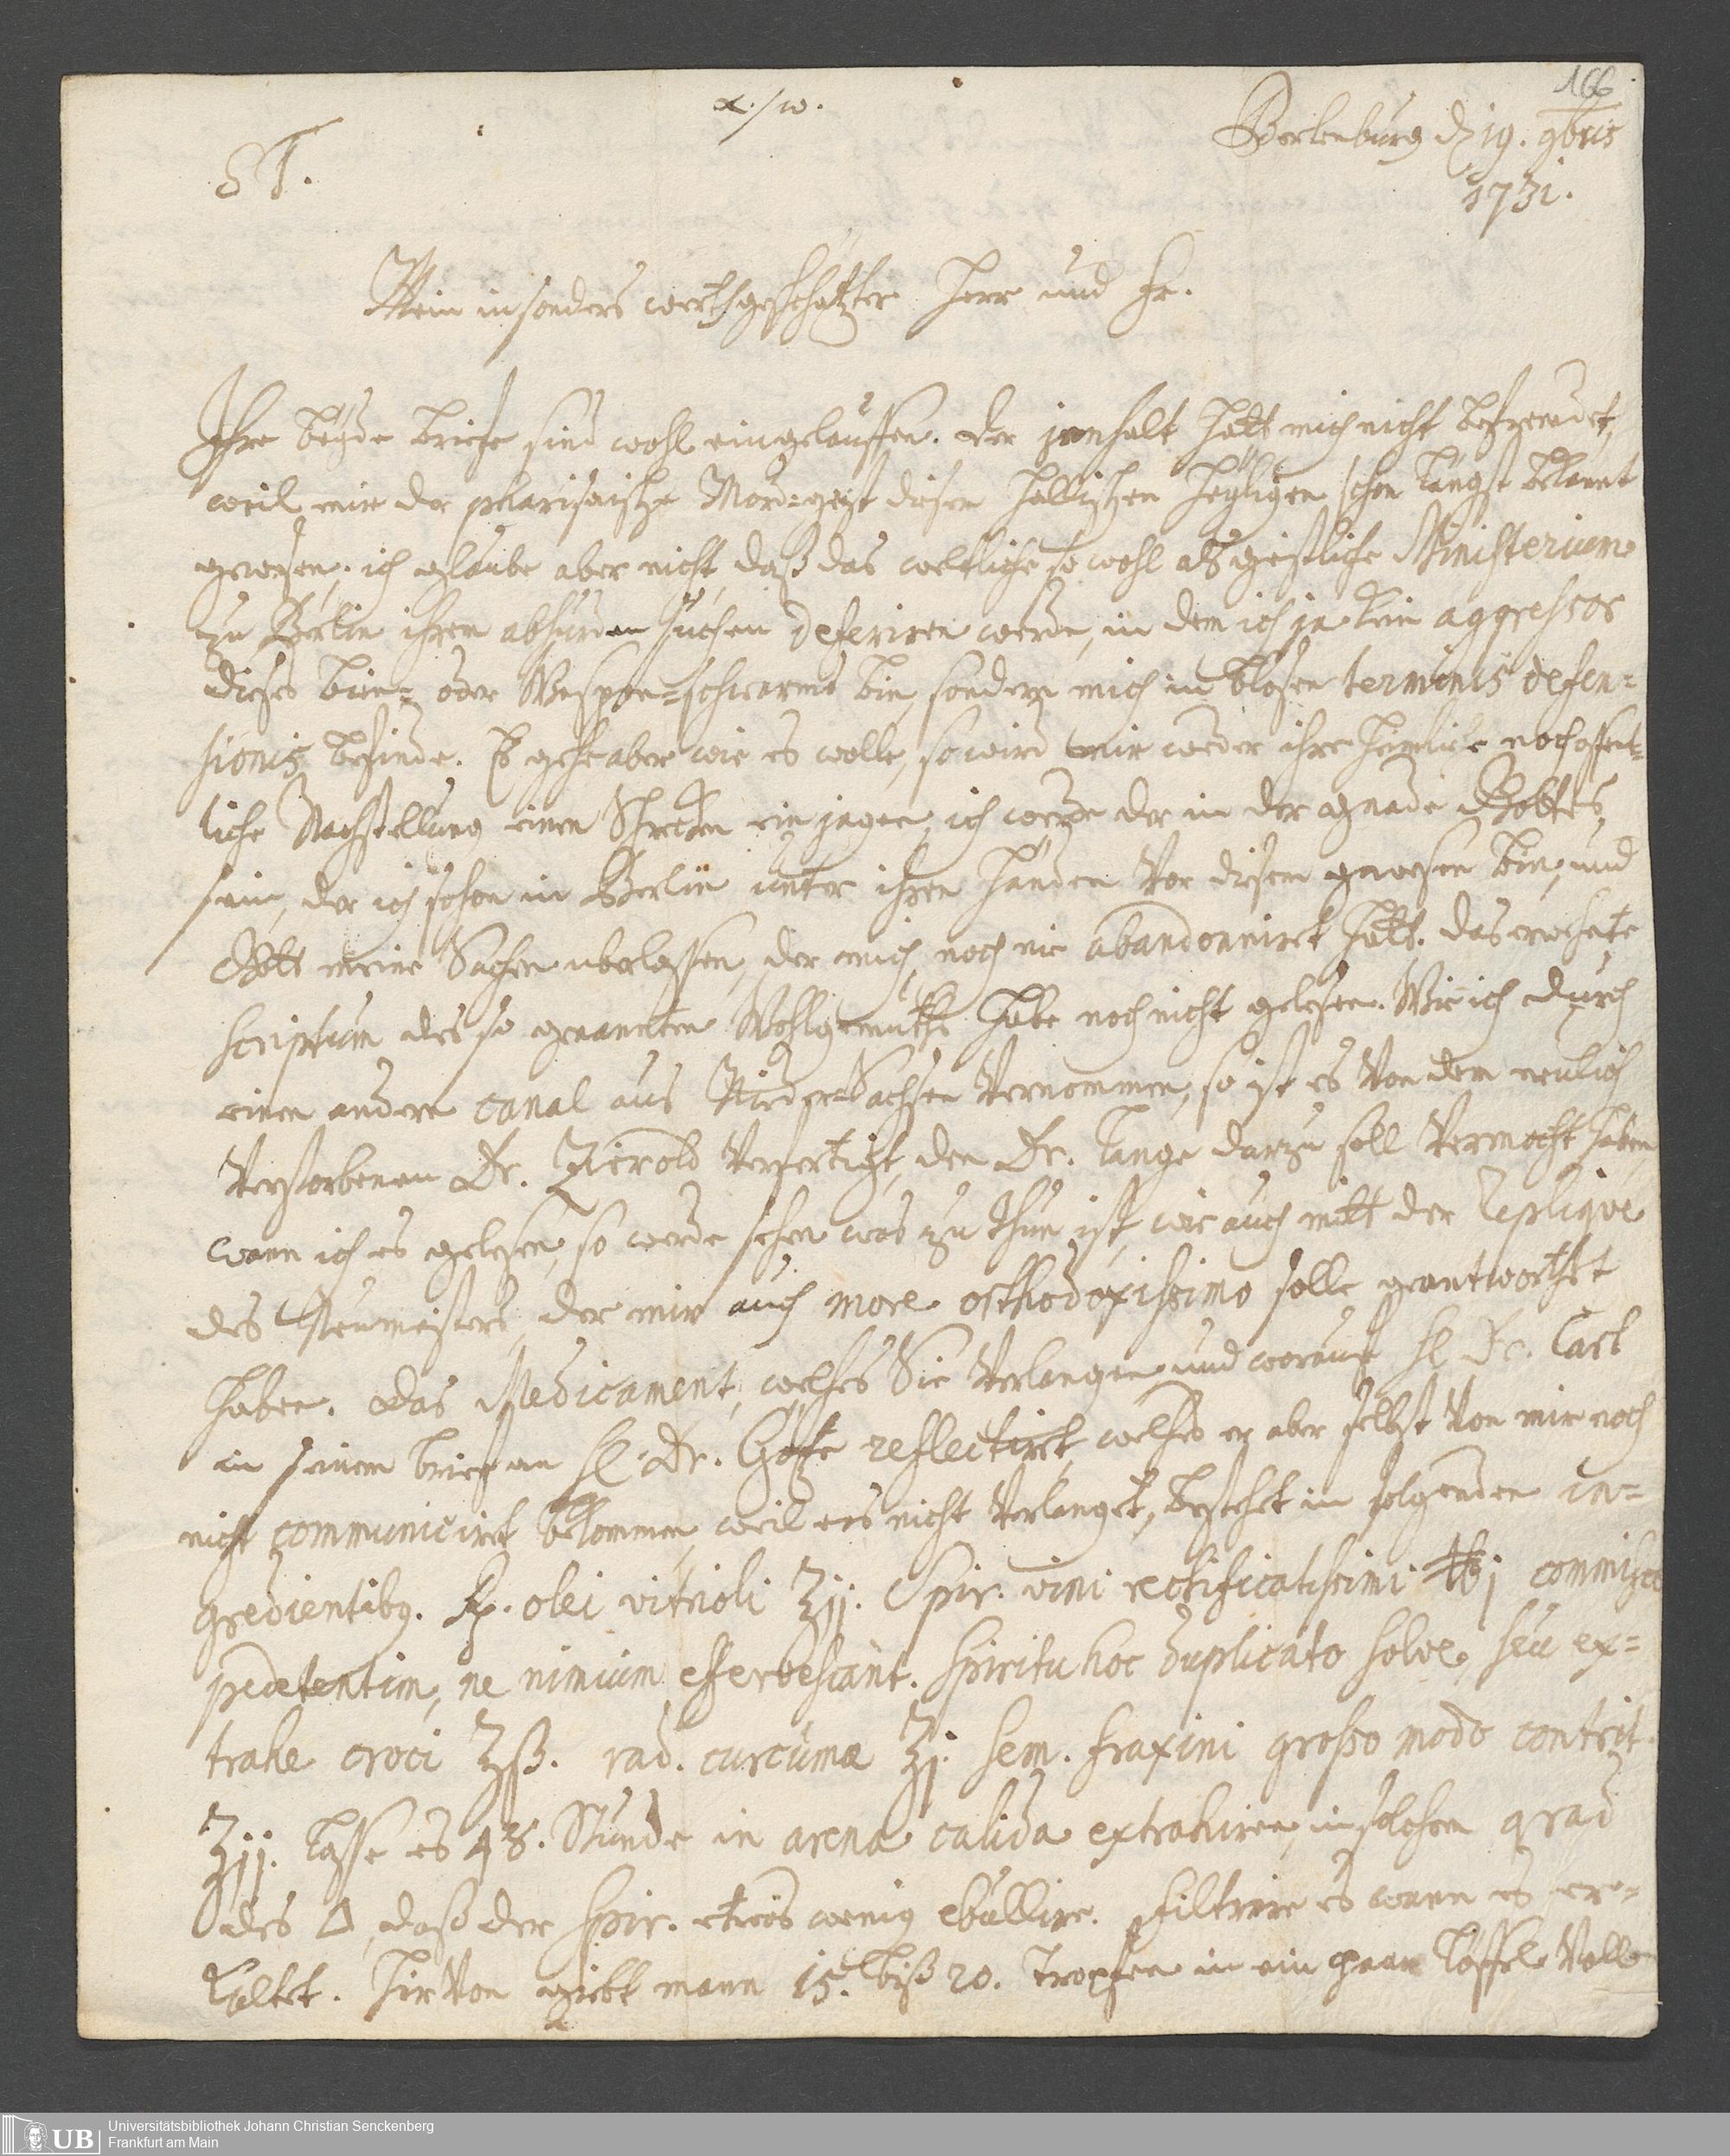 166
α./ω.
Berlenburg d 19. 9bris
ST.
1731.
Mein insonders werthgeschätzter Herr und Fr.
Ihre beyde brieffe sind wohl eingelauffen. Der jnnhalt hatt mich nicht befremdet,
weil mir der pharisaische Mord-geist dieser Hallischen Heyligen schon längst bekannt
gewesen; ich glaube aber nicht, daß das weltliche so wohl als geistliche Ministerium
zu Berlin ihrem absurden suchen deferiren werde, in dem ich ja kein aggressor
dieses bien- oder Wespen-schwarms bin, sondern mich in blosen terminis defen-
sionis befinde. Es gehe aber wie es wolle, so wird mir weder ihre heimliche noch offent-
liche Nachstellung einen Schrecken ein jagen, ich werde der in der gnade Gottes
sein, der ich schon in Berlin unter ihren Händen vor diesem gewesen bin, und
Gott meine Sachen uberlassen, der mich noch nie abandonniret hatt. Das erwehnte
scriptum des so genannten Wohlgemuths habe noch nicht gelesen. Wie ich durch
einen andern canal aus Nieder-Sachsen vernommen, so ist es von dem neulich
verstorbenen Dr. Zierold verfertigt, den Dr. Lange darzu soll vermocht haben,
wann ich es gelesen, so werde sehen was zu thun ist, wie auch mitt der replique
des Neumeisters, der mir auch more orthodoxissimo solle geantworthet
haben. Das Medicament, welches Sie verlangen und worauf H. Dr. Carl
in seinem brief an H. Dr. reflectiret, welches er aber selbst von mir noch
nicht communiciret bekommen, weil ers nicht verlanget, bestehet in folgenden in-
gredientibq. Rp. olei vitrioli ℥jj. Spir. vini rectificatissimi ℔j commisce
pedetentim, ne nimium effervescant. Spiritu hoc duplicato solve seu ex-
trahe croci ℥ß. rad. curcumæ ℥j. sem. fraxini grosso modo contrit.
℥jj. Lasse es 48. Stunde in arena calida extrahiren, in solchem grad
des △, daß der Spir. etwas wenig ebullire. Filtrire es wann es er-
kaltet. Hirvon giebt mann 15. biß 20. tropfen in ein paar Löffel voll
Universitätsbibliothek Johann Christian Senckenberg
Frankfurt am Main
UB